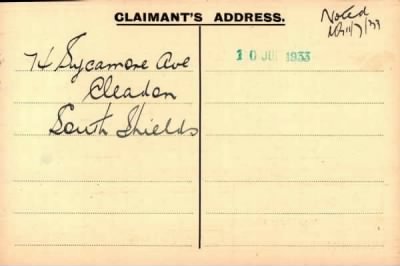 CLAIMANT'S ADDRESS.
Noted
11/7/33
74 Sycamore Ave
Cleadon
South Shields
10 JUL 1933